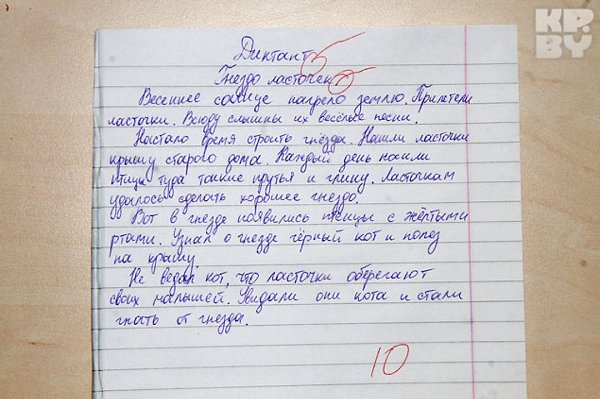 КР.
BY
Диктант
Гнездо ласточек
Весеннее солнце нагрело землю. Прилетели
ласточки. Всюду слышны их весёлые песни.
Настало время строить гнёзда. Нашли ласточки
крышу старого дома. Каждый день носили
птицы туда тонкие прутья и глину. Ласточкам
удалось сделать хорошее гнездо.
Вот в гнезде появились птенцы с жёлтыми
ртами. Узнал о гнезде чёрный кот и полез
на крышу.
Не ведал кот, что ласточки оберегают
своих малышей. Увидали они кота и стали
гнать от гнезда.
10